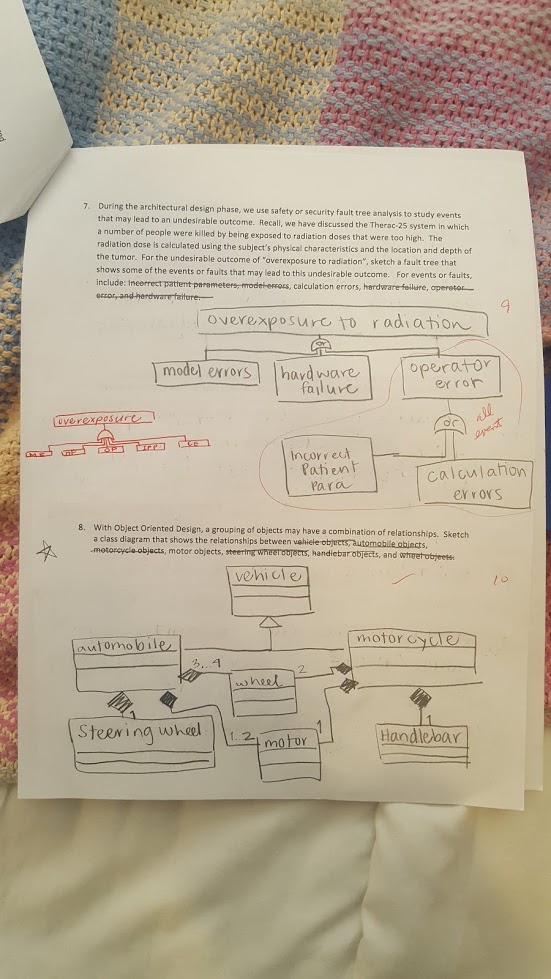 7. During the architectural design phase, we use safety or security fault tree analysis to study events
that may lead to an undesirable outcome. Recall, we have discussed the Therac-25 system in which
a number of people were killed by being exposed to radiation doses that were too high. The
radiation dose is calculated using the subject's physical characteristics and the location and depth of
the tumor. For the undesirable outcome of "overexposure to radiation", sketch a fault tree that
shows some of the events or faults that may lead to this undesirable outcome. For events or faults,
include: Incorrect patient parameters, model errors, calculation errors, hardware failure, operator
error, and hardware failure.
9
overexposure to radiation
or
model errors
hardware
failure
operator
error
overexposure
or
all
event
Incorrect
Patient
Para
calculation
errors
8. With Object Oriented Design, a grouping of objects may have a combination of relationships. Sketch
a class diagram that shows the relationships between vehicle objects, automobile objects,
motorcycle objects, motor objects, steering wheel objects, handlebar objects, and wheel objects.
10
vehicle
automobile
motorcycle
3..4
wheel
2
1
Steering wheel
1..2
motor
1
1
Handlebar